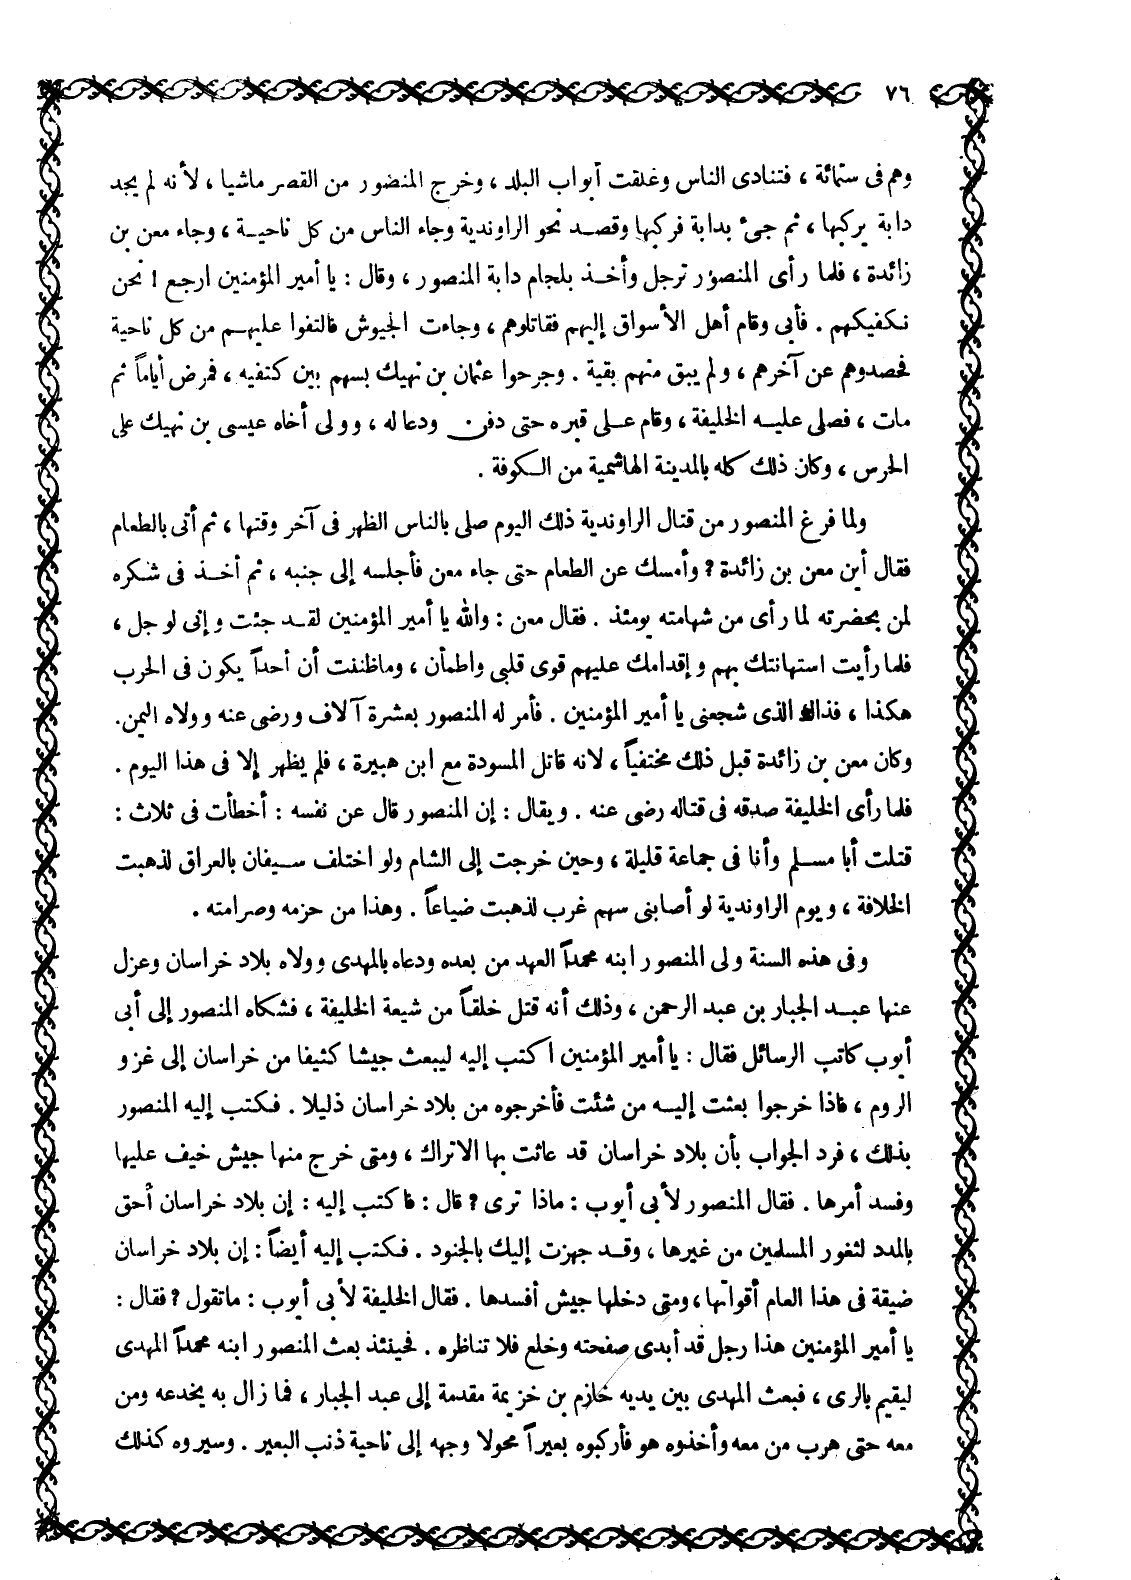 ٧٦
وهم فى ستمائة ، فتنادى الناس وغلقت أبواب البلد ، وخرج المنصور من القصر ماشيا ، لأنه لم يجد
دابة يركبها ، ثم جىء بدابة فركبها وقصد نحو الراوندية وجاء الناس من كل ناحية ، وجاء معن بن
زائدة ، فلما رأى المنصور ترجل وأخذ بلجام دابة المنصور ، وقال : يا أمير المؤمنين ارجع ! نحن
نكفيكهم . فأبى وقام أهل الأسواق إليهم فقاتلوهم ، وجاءت الجيوش فالتفوا عليهم من كل ناحية
فحصدوهم عن آخرهم ، ولم يبق منهم بقية . وجرحوا عثمان بن نهيك بسهم بين كتفيه ، فمرض أياماً ثم
مات ، فصلى عليه الخليفة ، وقام على قبره حتى دفن ودعا له ، وولى أخاه عيسى بن نهيك على
الحرس ، وكان ذلك كله بالمدينة الهاشمية من الكوفة .
ولما فرغ المنصور من قتال الراوندية ذلك اليوم صلى بالناس الظهر فى آخر وقتها ، ثم أتى بالطعام
فقال أين معن بن زائدة ؟ وأمسك عن الطعام حتى جاء معن فأجلسه إلى جنبه ، ثم أخذ فى شكره
لمن بحضرته لما رأى من شهامته يومئذ . فقال معن : والله يا أمير المؤمنين لقد جئت وإنى لوجل ،
فلما رأيت استهانتك بهم وإقدامك عليهم قوى قلبى واطمأن ، وماظننت أن أحداً يكون فى الحرب
هكذا ، فذاك الذى شجعنى يا أمير المؤمنين . فأمر له المنصور بعشرة آلاف ورضى عنه وولاه اليمن .
وكان معن بن زائدة قبل ذلك مختفياً ، لانه قاتل المسودة مع ابن هبيرة ، فلم يظهر إلا فى هذا اليوم .
فلما رأى الخليفة صدقه فى قتاله رضى عنه . ويقال : إن المنصور قال عن نفسه : أخطأت فى ثلاث :
قتلت أبا مسلم وأنا فى جماعة قليلة ، وحين خرجت إلى الشام ولو اختلف سيفان بالعراق لذهبت
الخلافة ، ويوم الراوندية لو أصابنى سهم غرب لذهبت ضياعاً . وهذا من حزمه وصرامته .
وفى هذه السنة ولى المنصور ابنه محمداً العهد من بعده ودعاه بالمهدى وولاه بلاد خراسان وعزل
عنها عبد الجبار بن عبد الرحمن ، وذلك أنه قتل خلقاً من شيعة الخليفة ، فشكاه المنصور إلى أبى
أيوب كاتب الرسائل فقال : يا أمير المؤمنين اكتب إليه ليبعث جيشا كثيفا من خراسان إلى غزو
الروم ، فاذا خرجوا بعثت إليه من شئت فأخرجوه من بلاد خراسان ذليلا . فكتب إليه المنصور
بذلك ، فرد الجواب بأن بلاد خراسان قد عاثت بها الاتراك ، ومتى خرج منها جيش خيف عليها
وفسد أمرها . فقال المنصور لأبى أيوب : ماذا ترى ؟ قال : فاكتب إليه : إن بلاد خراسان أحق
بالمدد لثغور المسلمين من غيرها ، وقد جهزت إليك بالجنود . فكتب إليه أيضاً : إن بلاد خراسان
ضيقة فى هذا العام أقواتها ، ومتى دخلها جيش أفسدها . فقال الخليفة لأبى أيوب : ماتقول ؟ فقال :
يا أمير المؤمنين هذا رجل قد أبدى صفحته وخلع فلا تناظره . فحينئذ بعث المنصور ابنه محمداً المهدى
ليقيم بالرى ، فبعث المهدى بين يديه خازم بن خزيمة مقدمة إلى عبد الجبار ، فما زال به يخدعه ومن
معه حتى هرب من معه وأخذوه هو فأركبوه بعيراً محولا وجهه إلى ناحية ذنب البعير . وسيروه كذلك